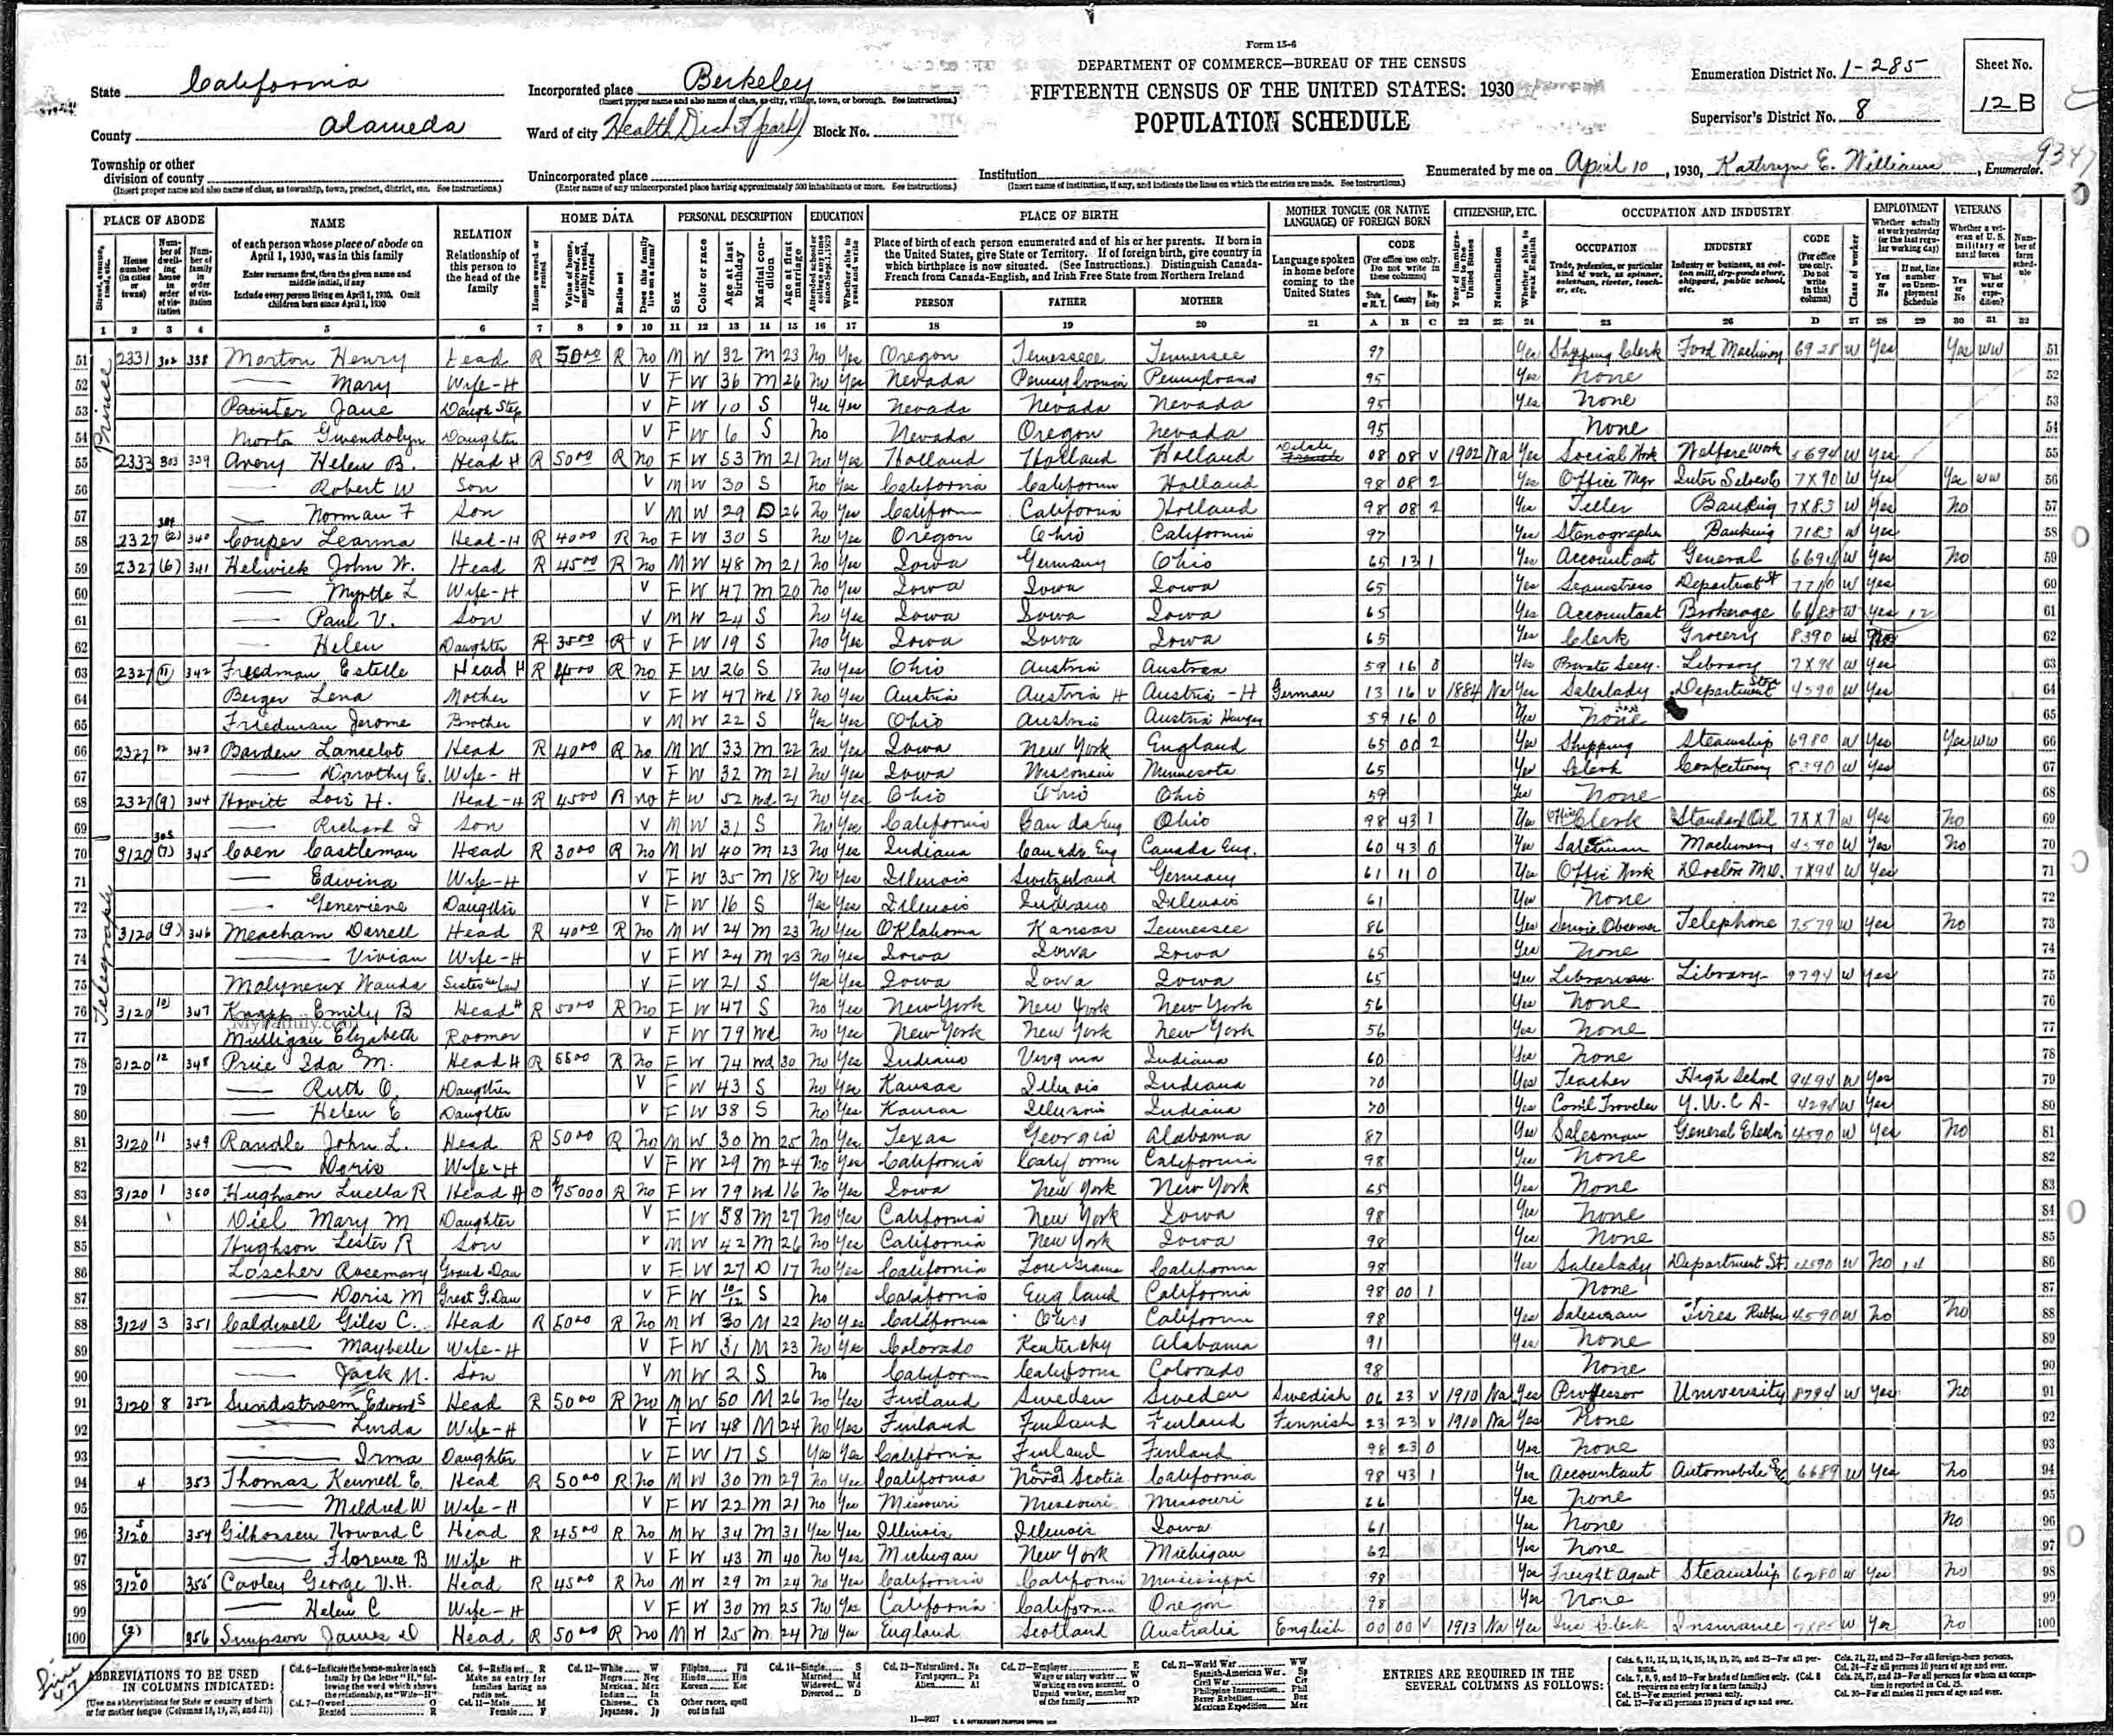 Form 15-6
DEPARTMENT OF COMMERCE—BUREAU OF THE CENSUS
FIFTEENTH CENSUS OF THE UNITED STATES: 1930
POPULATION SCHEDULE
State California
County Alameda
Township or other division of county
(Insert proper name and also name of class, as township, town, precinct, district, etc. See instructions.)
Incorporated place Berkeley
(Insert proper name and also name of class, as city, village, town, or borough. See instructions.)
Ward of city Health Dist Block No.
Unincorporated place
(Enter name of any unincorporated place having approximately 500 inhabitants or more. See instructions.)
Institution
(Insert name of institution, if any, and indicate the lines on which the entries are made. See instructions.)
Enumeration District No. 1-285
Supervisor's District No. 8
Sheet No. 12 B
Enumerated by me on April 10, 1930, Kathryn E. Williams, Enumerator.
9347
PLACE OF ABODE NAME RELATION HOME DATA PERSONAL DESCRIPTION EDUCATION PLACE OF BIRTH MOTHER TONGUE (OR NATIVE LANGUAGE) OF FOREIGN BORN CITIZENSHIP, ETC. OCCUPATION AND INDUSTRY EMPLOYMENT VETERANS
of each person whose place of abode on April 1, 1930, was in this family
Enter surname first, then the given name and middle initial, if any
Include every person living on April 1, 1930. Omit children born since April 1, 1930
Relationship of this person to the head of the family
Place of birth of each person enumerated and of his or her parents. If born in the United States, give State or Territory. If of foreign birth, give country in which birthplace is now situated. (See Instructions.) Distinguish Canada-French from Canada-English, and Irish Free State from Northern Ireland
PERSON FATHER MOTHER
Language spoken in home before coming to the United States
OCCUPATION INDUSTRY CODE
51 2331 302 338 Morton Henry Head R 50.00 R No M W 32 M 23 No Yes Oregon Tennessee Tennessee 97 Yes Shipping Clerk Food Machinery 6928 W Yes Yes WW 51
52 Mary Wife-H V F W 36 M 26 No Yes Nevada Pennsylvania Pennsylvania 95 Yes None 52
53 Painter Jane Daugh Step V F W 10 S Yes Yes Nevada Nevada Nevada 95 Yes None 53
54 Gwendolyn Daughter V F W 6 S No Nevada Oregon Nevada 95 None 54
55 2333 303 339 Avery Helen B. Head H R 50.00 R No F W 53 M 21 No Yes Holland Holland Holland 08 08 V 1902 Na Yes Social Work Welfare Work 5694 W Yes 55
56 Robert W Son V M W 30 S No Yes California California Holland 98 08 2 Yes Office Mgr 7X90 W Yes Yes WW 56
57 Norman F Son V M W 29 D 26 No Yes California California Holland 98 08 2 Yes Teller Banking 7X83 W Yes No 57
58 2327 (2) 340 Couper Leanna Head-H R 40.00 R No F W 30 S No Yes Oregon Ohio California 97 Yes Stenographer Banking 7183 W Yes 58
59 2327 (6) 341 Helwick John W. Head R 45.00 R No M W 48 M 21 No Yes Iowa Germany Ohio 65 13 1 Yes Accountant General 6694 W Yes No 59
60 Myrtle L Wife-H V F W 47 M 20 No Yes Iowa Iowa Iowa 65 Yes Seamstress Department 7710 W Yes 60
61 Paul V. Son V M W 24 S No Yes Iowa Iowa Iowa 65 Yes Accountant Brokerage W Yes 12 61
62 Helen Daughter R 35.00 R V F W 19 S No Yes Iowa Iowa Iowa 65 Yes Clerk Grocery 8390 W 62
63 2327 (11) 342 Freedman Estelle Head H R R No F W 26 S No Yes Ohio Austria Austria 59 16 0 Yes Private Secy. Library 7X94 W Yes 63
64 Berger Lena Mother V F W 47 Wd 18 No Yes Austria Austria H Austria-H German 13 16 V 1884 Na Yes Saleslady Department Store 4590 W Yes 64
65 Friedman Jerome Brother V M W 22 S Yes Yes Ohio Austria Austria Hungary 59 16 0 Yes None 65
66 2327 12 343 Barden Lancelot Head R 40.00 R No M W 33 M 22 No Yes Iowa New York England 65 00 2 Yes Shipping Steamship 6980 W Yes Yes WW 66
67 Dorothy E. Wife-H V F W 32 M 21 No Yes Iowa Wisconsin Minnesota 65 Yes Clerk Confectionery 8390 W Yes 67
68 2327 (9) 344 Howitt Lois H. Head-H R 45.00 R No F W 52 Wd 21 No Yes Ohio Ohio Ohio 59 Yes None 68
69 Richard Son V M W 31 S No Yes California Canada Eng Ohio 98 43 1 Yes Office Clerk Standard Oil 7XX7 W Yes No 69
70 3120 (7) 345 Coen Castleman Head R 30.00 R No M W 40 M 23 No Yes Indiana Canada Eng Canada Eng. 60 43 0 Yes Salesman Machinery 4590 W Yes No 70
71 Edwina Wife-H V F W 35 M 18 No Yes Illinois Switzerland Germany 61 11 0 Yes Office Work 7X94 W Yes 71
72 Genevieve Daughter V F W 16 S Yes Yes Illinois Indiana Illinois 61 Yes None 72
73 3120 (9) 346 Meacham Darrell Head R 40.00 R No M W 24 M 23 No Yes Oklahoma Kansas Tennessee 86 Yes Service Observer Telephone 7579 W Yes No 73
74 Vivian Wife-H V F W 24 M 23 No Yes Iowa Iowa Iowa 65 Yes None 74
75 Molyneux Wanda Sister in law V F W 21 S Yes Yes Iowa Iowa Iowa 65 Yes Librarian Library 9794 W Yes 75
76 3120 10 347 Knapp Emily B Head H R 50.00 R No F W 47 S No Yes New York New York New York 56 Yes None 76
MyFamily.com
77 Mulligan Elizabeth Roomer V F W 79 Wd No Yes New York New York New York 56 Yes None 77
78 3120 12 348 Price Ida M. Head H R 55.00 R No F W 74 Wd 30 No Yes Indiana Virginia Indiana 60 Yes None 78
79 Ruth O. Daughter V F W 43 S No Yes Kansas Illinois Indiana 70 Yes Teacher High School 9494 W Yes 79
80 Helen E Daughter V F W 38 S No Yes Kansas Illinois Indiana 70 Yes Coml Traveler Y.W.C.A. 4294 W Yes 80
81 3120 11 349 Randle John L. Head R 50.00 R No M W 30 M 25 No Yes Texas Georgia Alabama 87 Yes Salesman General Electric 4590 W Yes No 81
82 Doris Wife-H V F W 29 M 24 No Yes California California California 98 Yes None 82
83 3120 1 350 Hughson Luella R Head H O 75000 R No F W 79 Wd 16 No Yes Iowa New York New York 65 Yes None 83
84 Diel Mary M Daughter V F W 58 M 27 No Yes California New York Iowa 98 Yes None 84
85 Hughson Lester R Son V M W 42 M 26 No Yes California New York Iowa 98 Yes None 85
86 Loscher Rosemary Grand Dau V F W 27 D 17 No Yes California Louisiana California 98 Yes Saleslady Department St 4590 W No 86
87 Doris M Great G. Dau V F W 10/12 S No California England California 98 00 1 None 87
88 3120 3 351 Caldwell Giles C. Head R 50.00 R No M W 30 M 22 No Yes California Ohio California 98 Yes Salesman Tires Rubber 4590 W No No 88
89 Maybelle Wife-H V F W 31 M 23 No Yes Colorado Kentucky Alabama 91 Yes None 89
90 Jack M. Son V M W 2 S No California California Colorado 98 None 90
91 3120 8 352 Sundstroem Edward S Head R 50.00 R No M W 50 M 26 No Yes Finland Sweden Sweden Swedish 06 23 V 1910 Na Yes Professor University 8794 W Yes No 91
92 Linda Wife-H V F W 48 M 24 No Yes Finland Finland Finland Finnish 23 23 V 1910 Na Yes None 92
93 Irma Daughter V F W 17 S Yes Yes California Finland Finland 98 23 0 Yes None 93
94 4 353 Thomas Kenneth E. Head R 50.00 R No M W 30 M 29 No Yes California Nova Scotia California 98 43 1 Yes Accountant Automobile 6689 W Yes No 94
95 Mildred W Wife-H V F W 22 M 21 No Yes Missouri Missouri Missouri 66 Yes None 95
96 3120 5 354 Gilhousen Howard C Head R 45.00 R No M W 34 M 31 Yes Yes Illinois Illinois Iowa 61 Yes None No 96
97 Florence B Wife H V F W 43 M 40 No Yes Michigan New York Michigan 62 Yes None 97
98 3120 6 355 Cooley George V.H. Head R 45.00 R No M W 29 M 24 No Yes California California Mississippi 98 Yes Freight Agent Steamship 6280 W Yes No 98
99 Helen C Wife-H V F W 30 M 25 No Yes California California Oregon 98 Yes None 99
100 (2) 356 Simpson James D Head R 50.00 R No M W 25 M 24 No Yes England Scotland Australia English 00 00 V 1913 Na Yes Ins Clerk Insurance 7X85 W Yes No 100
ABBREVIATIONS TO BE USED IN COLUMNS INDICATED:
[Use no abbreviations for State or country of birth or for mother tongue (Columns 18, 19, 20, and 21)]
Col. 6—Indicate the home-maker in each family by the letter "H," following the word which shows the relationship, as "Wife—H"
Col. 7—Owned O Rented R
Col. 9—Radio set R Make no entry for families having no radio set
Col. 11—Male M Female F
Col. 12—White W Negro Neg Mexican Mex Indian In Chinese Ch Japanese Jp
Filipino Fil Hindu Hin Korean Kor Other races, spell out in full
Col. 14—Single S Married M Widowed Wd Divorced D
Col. 23—Naturalized Na First papers Pa Alien Al
Col. 27—Employer E Wage or salary worker W Working on own account O Unpaid worker, member of the family NP
Col. 31—World War WW Spanish-American War Sp Civil War Civ Philippine Insurrection Phil Boxer Rebellion Box Mexican Expedition Mex
ENTRIES ARE REQUIRED IN THE SEVERAL COLUMNS AS FOLLOWS:
11—9227 U. S. GOVERNMENT PRINTING OFFICE